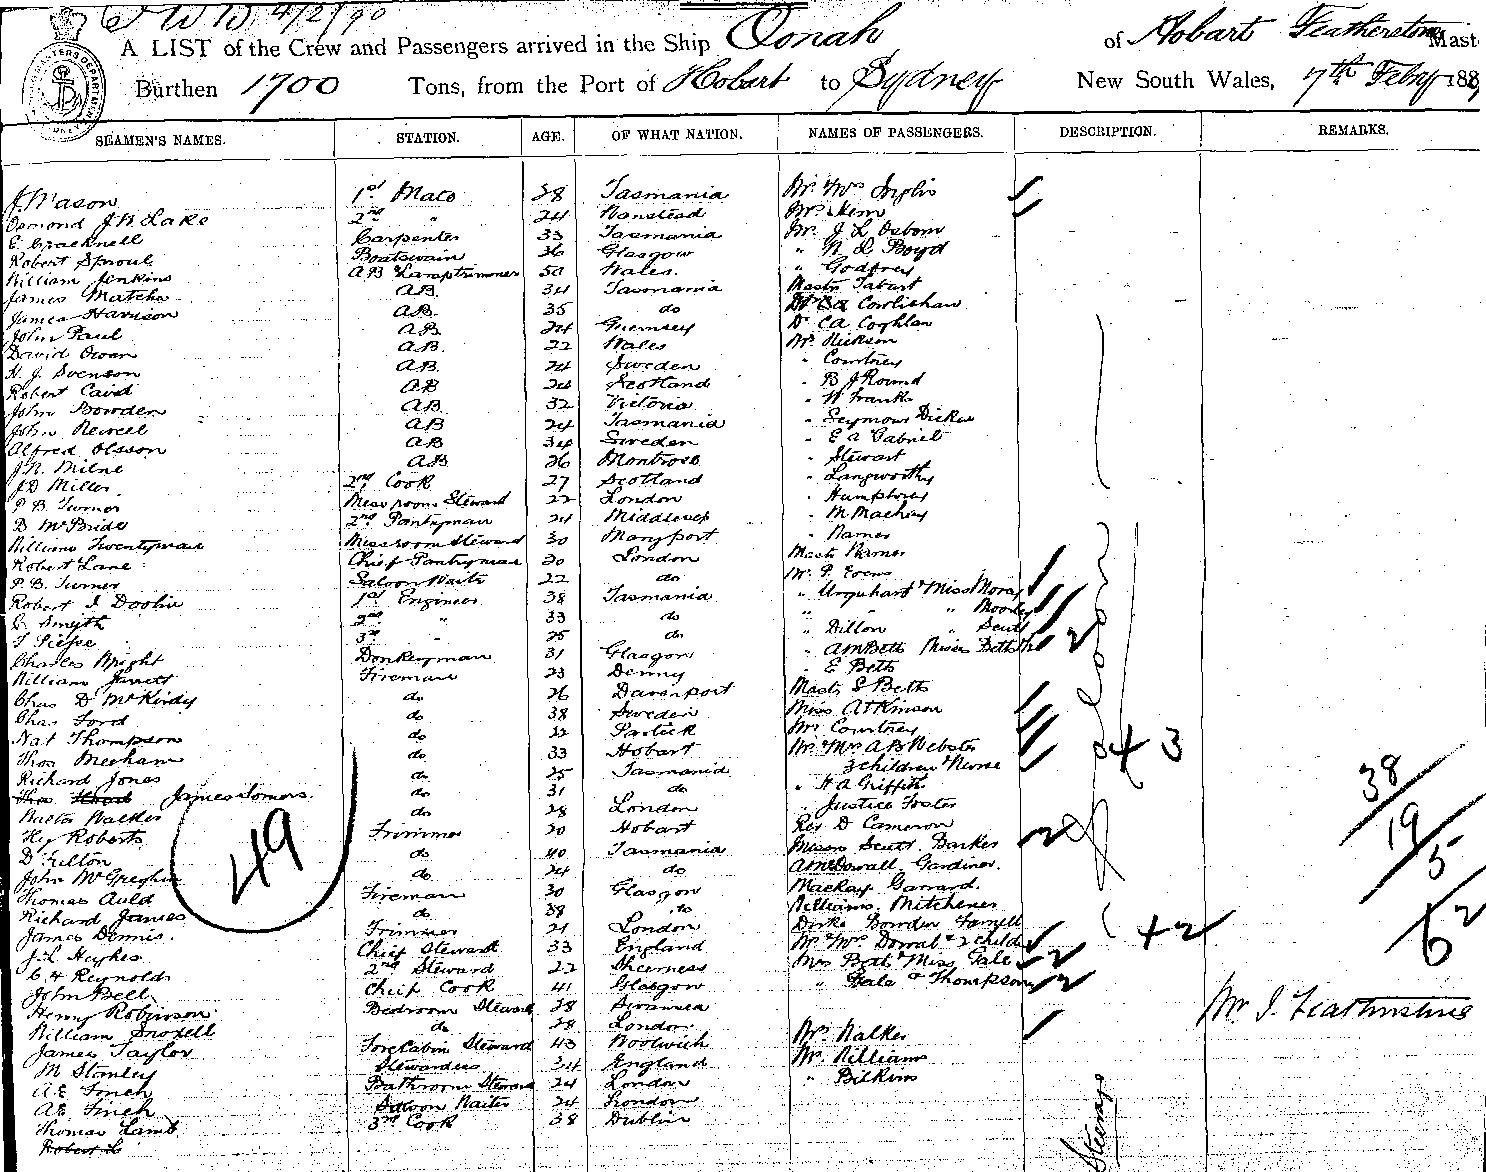 4/2/90
A LIST of the Crew and Passengers arrived in the Ship Oonah of Hobart Featherstone Mast
Burthen 1700 Tons, from the Port of Hobart to Sydney New South Wales, 7th Feby 188
SEAMEN'S NAMES. STATION. AGE. OF WHAT NATION. NAMES OF PASSENGERS. DESCRIPTION. REMARKS.
J. Mason 1st Mate 38 Tasmania Mr & Mrs Inglis
Osmond J. N. Lake 2nd " 24 Wanstead Mrs Kern
E Cracknell Carpenter 33 Tasmania Mr. J L Osborn
Robert Sproul Boatswain 36 Glasgow " Boyd
William Jenkins AB Lamptrimmer 50 Wales. " Godfrey
James AB. 34 Tasmania Mastr Tabart
James Harrison AB. 35 do Cowlishaw
John Paul AB. 24 Guernsey Dr CA Coghlan
David Owen AB. 22 Wales Mr. Hickson
H. J. Svenson AB. 24 Sweden " Courtney
Robert Caird AB 24 Scotland " B J Round
John Bowden AB 32 Victoria " W Franks
John Newell AB 24 Tasmania " Seymour Dicker
Alfred Olsson AB 34 Sweden " E A Gabriel
J. N. Milne AB 26 Montrose " Stewart
J D Miller 2nd Cook 27 Scotland " Langworthy
P B. Turner Messroom Steward 22 London " Humphrey
D McBride 2nd Pantryman 24 " M Mackay
William Twentyman Messroom Steward 30 Maryport " Barnes
Robert Lane Chief Pantryman 20 London Mastr Barnes
P B. Turner Saloon Waiter 22 do Mr. P.
Robert I Doolin 1st Engineer 38 Tasmania " Urquhart & Miss Moray
Smyth 2nd " 33 do " " " Moodey
T Piesse 3rd " 25 do " Dillon " Scutt
Charles Bright Donkeyman 31 Glasgow " A M Betts Misses Betts 2
William Jarrett Fireman 23 Denny " E Betts
Chas D McKirdy do 26 Davenport Mastr S Betts
Chas Ford do 38 Sweden Miss Atkinson
Nat Thompson do 22 Partick Mrs Courtney
Thos Meeham do 33 Hobart Mr. & Mrs A B Webster 43
Richard Jones do 25 Tasmania 3 children & Nurse
Thos James Somers do 31 do " H A Griffith
Walter Walker do 28 London " Justice Foster
Hy Roberts Trimmer 20 Hobart Rev D Cameron
D Fulton do 40 Tasmania Misses Scutt. Barker
John McGreghin do 24 do A McDowall Gardiner.
Thomas Auld Fireman 30 Glasgow Mackay Garrard.
Richard James do 38 do Williams. Mitchener
James Dennis. Trimmer 21 London Dirks Bowden Farrell
J. L Hughes Chief Steward 33 England Mr & Mrs & 2 child +2
C. H Reynolds 2nd Steward 22 Sheerness Mrs Batt & Miss Gale
John Bell Chief Cook 41 Glasgow " Gale & Thompson
Henry Robinson Bedroom Steward 38 Swansea
William Snoxell do 28 London Mrs Walker
James Taylor Forecabin Steward 43 Woolwich Mr. Williams
M Stanley Stewardess 34 England " Bilkins
AE Finch Bathroom Steward 24 London
AE Finch Saloon Waiter 24 London
Thomas Lamb 3rd Cook 38 Dublin
Robert L
49
Saloon
Steerage
38
19
5
62
Mr. J. Featherstone